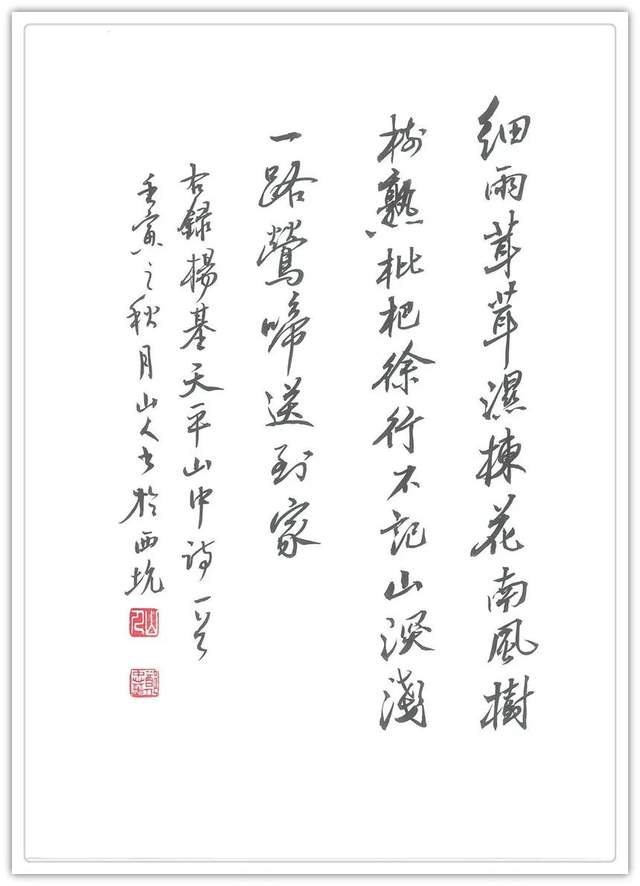 細雨茸茸濕楝花南風樹
樹熟枇杷徐行不記山深淺
一路鶯啼送到家
右録楊基天平山中詩一首
壬寅之秋月山人書於西坑